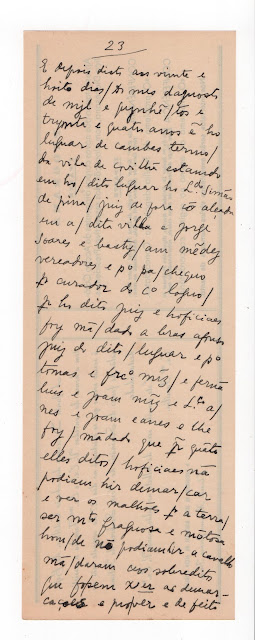 23
E depois disto aos vimte e
hoito dias/do mes dagosto
de mjl e qujnhē/tos e
trymta e quatro anos ē ho
luguar de cambas termo/
da vila de covilhã estamdo
em ho/dito luguar ho L.do Simão
de pina/juiz de fora cõ alçada
em a/dita villa e jorge
Soares e basty/am mēdez
vereadores e p.º pa/checo
procurador do cº loguo/
p ho dito juiz e hoficiaes
foy mã/dado a bras afonso
juiz do dito/luguar e pº
tomas e fr.co mīz/e fernã
luis e joam mīz e L.do a/
nes e joam eanes e lhe
foy/mãdado que pr quãto
elles ditos/hoficiaes nã
podiam hir demar/car
e ver os malhões p a terra/
ser mto fragosa e matosa
hom/de nõ podiam hir a cavallo
mã/daram aos sobreditos
que fosem ver as demar-
cações e prover e de feito